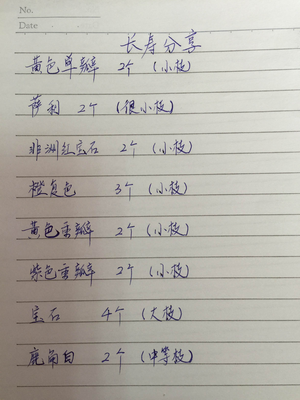 No.
Date
长寿分享
黄色单瓣 2个 (小枝)
萨利 2个 (很小枝)
非洲红宝石 2个 (小枝)
橙复色 3个 (小枝)
黄色重瓣 2个 (小枝)
紫色重瓣 2个 (小枝)
宝石 4个 (大枝)
鹿角白 2个 (中等枝)